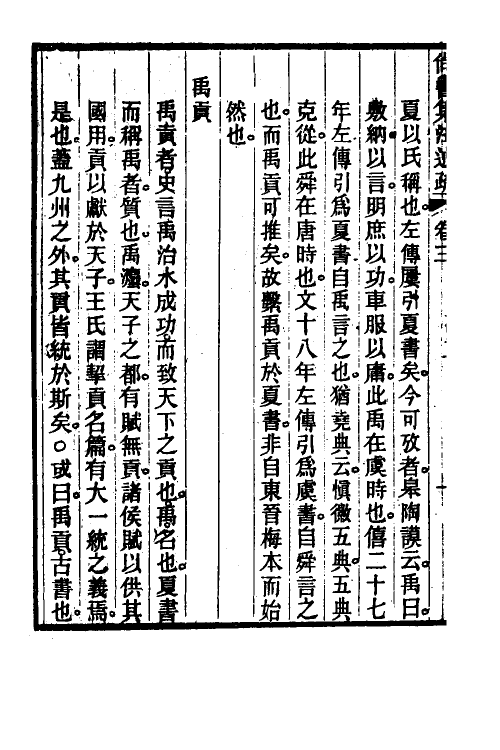 尚書集注述疏 卷三
夏以氏稱也左傳屢引夏書矣。今可攷者。皋陶謨云。禹曰。
敷納以言。明庶以功。車服以庸。此禹在虞時也。僖二十七
年左傳引爲夏書。自禹言之也。猶堯典云。愼徽五典。五典
克從。此舜在唐時也。文十八年左傳引爲虞書。自舜言之
也。而禹貢可推矣。故繫禹貢於夏書。非自東晉梅本而始
然也。
禹貢
禹貢者。史言禹治水成功而致天下之貢也。禹。名也。夏書
而稱禹者。質也。禹
天子之都。有賦無貢。諸侯賦以供其
國用。貢以獻於天子。王氏謂挈貢名篇。有大一統之義焉。
是也。蓋九州之外。其貢皆統於斯矣。○或曰。禹貢。古書也。